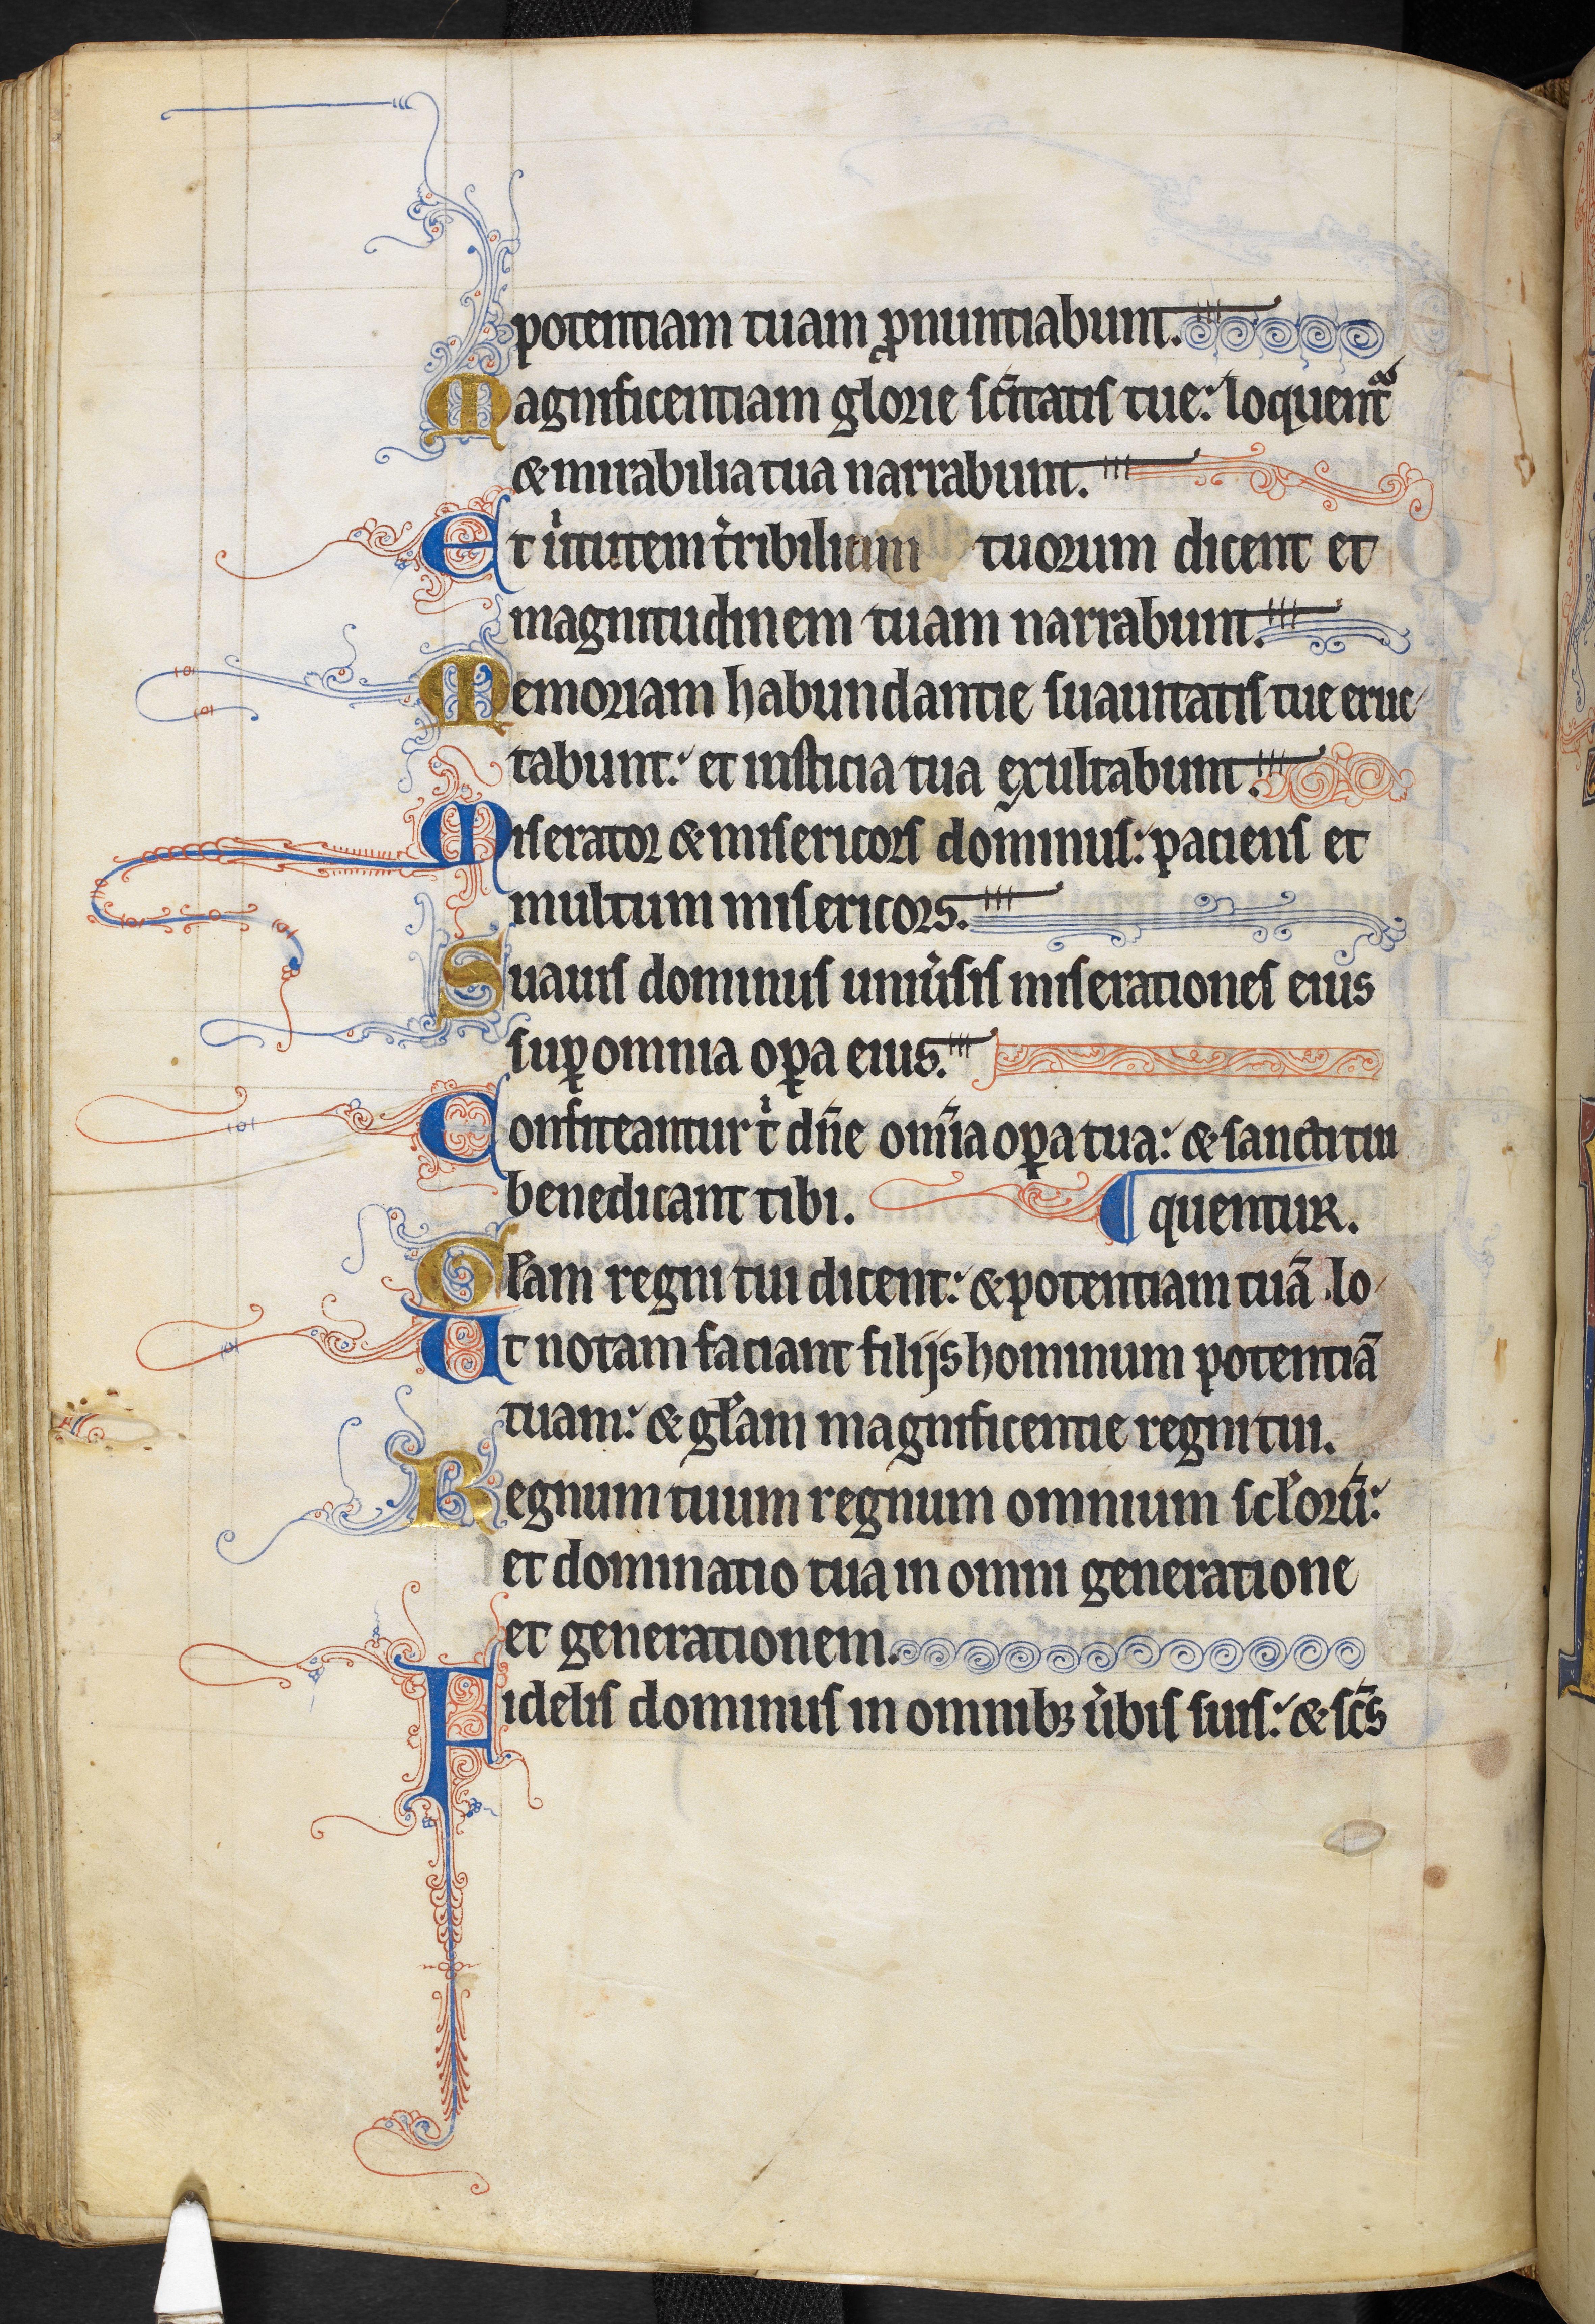 potentiam tuam ꝓnuntiabunt.
Magnificentiam glorie sc̄itatis tue: loquent᷑
& mirabilia tua narrabunt.
Et uͥtutem t̉ribilium tuorum dicent et
magnitudinem tuam narrabunt.
Memoriam habundantie suauitatis tue eruc
tabunt: et iusticia tua exultabunt.
Miserator & misericors dominus: paciens et
multum misericors.
Suauis dominus uniu̓sis miserationes eius
suꝑ omnia oꝑa eius.
Confiteantur tͥ dn̄e om̄ia oꝑa tua: & sancti tui
benedicant tibi. ¶ quentur.
Gl̄am regni tui dicent: & potentiam tuā lo
Ut notam faciant filijs hominum potentiā
tuam: & gl̄am magnificentie regni tui.
Regnum tuum regnum omnium scl̄orū:
et dominatio tua in omni generatione
et generationem.
Fidelis dominus in omnibꝫ u̓bis suis: & sc̄s